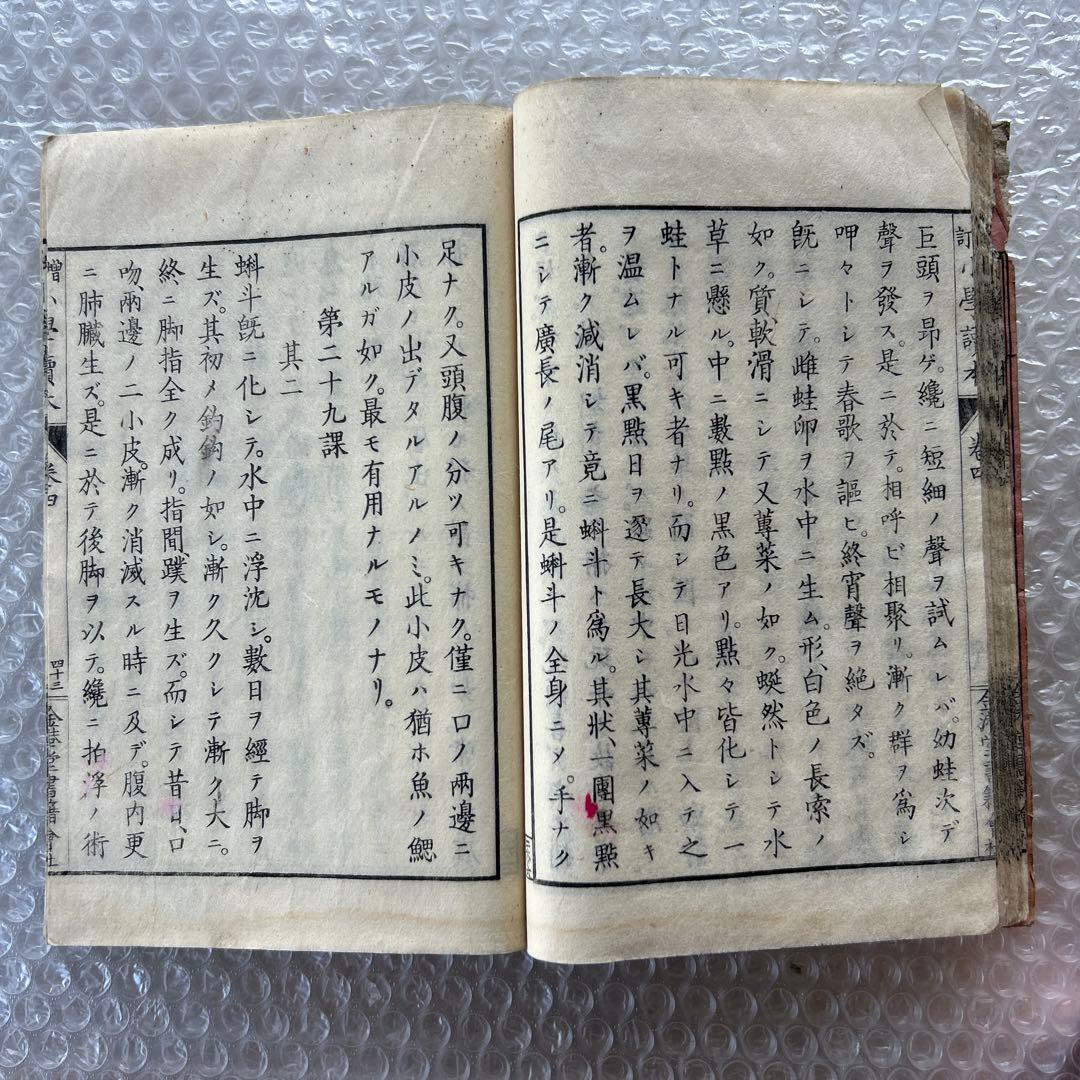 訂小學讀本
卷四
巨頭ヲ昂ゲ。纔ニ短細ノ聲ヲ試ムレバ。幼蛙次デ
聲ヲ發ス。是ニ於テ。相呼ビ相聚リ。漸ク群ヲ爲シ
呷々トシテ春歌ヲ謳ヒ。終宵聲ヲ絶タズ。
既ニシテ。雌蛙卵ヲ水中ニ生ム。形、白色ノ長索ノ
如ク。質、軟滑ニシテ又蓴菜ノ如ク。蜒然トシテ水
草ニ懸ル。中ニ數點ノ黒色アリ。點々皆化シテ一
蛙トナル可キ者ナリ。而シテ日光水中ニ入テ之
ヲ温ムレバ。黒點日ヲ逐テ長大シ其蓴菜ノ如キ
者。漸ク減消シテ竟ニ蝌斗ト爲ル。其狀、一團黒點
ニシテ廣長ノ尾アリ。是蝌斗ノ全身ニメ。手ナク
足ナク。又頭腹ノ分ツ可キナク。僅ニ口ノ兩邊ニ
小皮ノ出デタルアルノミ。此小皮ハ猶ホ魚ノ鰓
アルガ如ク。最モ有用ナルモノナリ。
第二十九課
其二
蝌斗既ニ化シテ。水中ニ浮沈シ。數日ヲ經テ脚ヲ
生ズ。其初メ釣鈎ノ如シ。漸ク久クシテ漸ク大ニ。
終ニ脚指全ク成リ。指間、蹼ヲ生ズ。而シテ昔日、口
吻、兩邊ノ二小皮。漸ク消滅スル時ニ及デ。腹内更
ニ肺臟生ズ。是ニ於テ後脚ヲ以テ。纔ニ拍浮ノ術
小學讀本
卷四
四十三
金港堂書籍會社